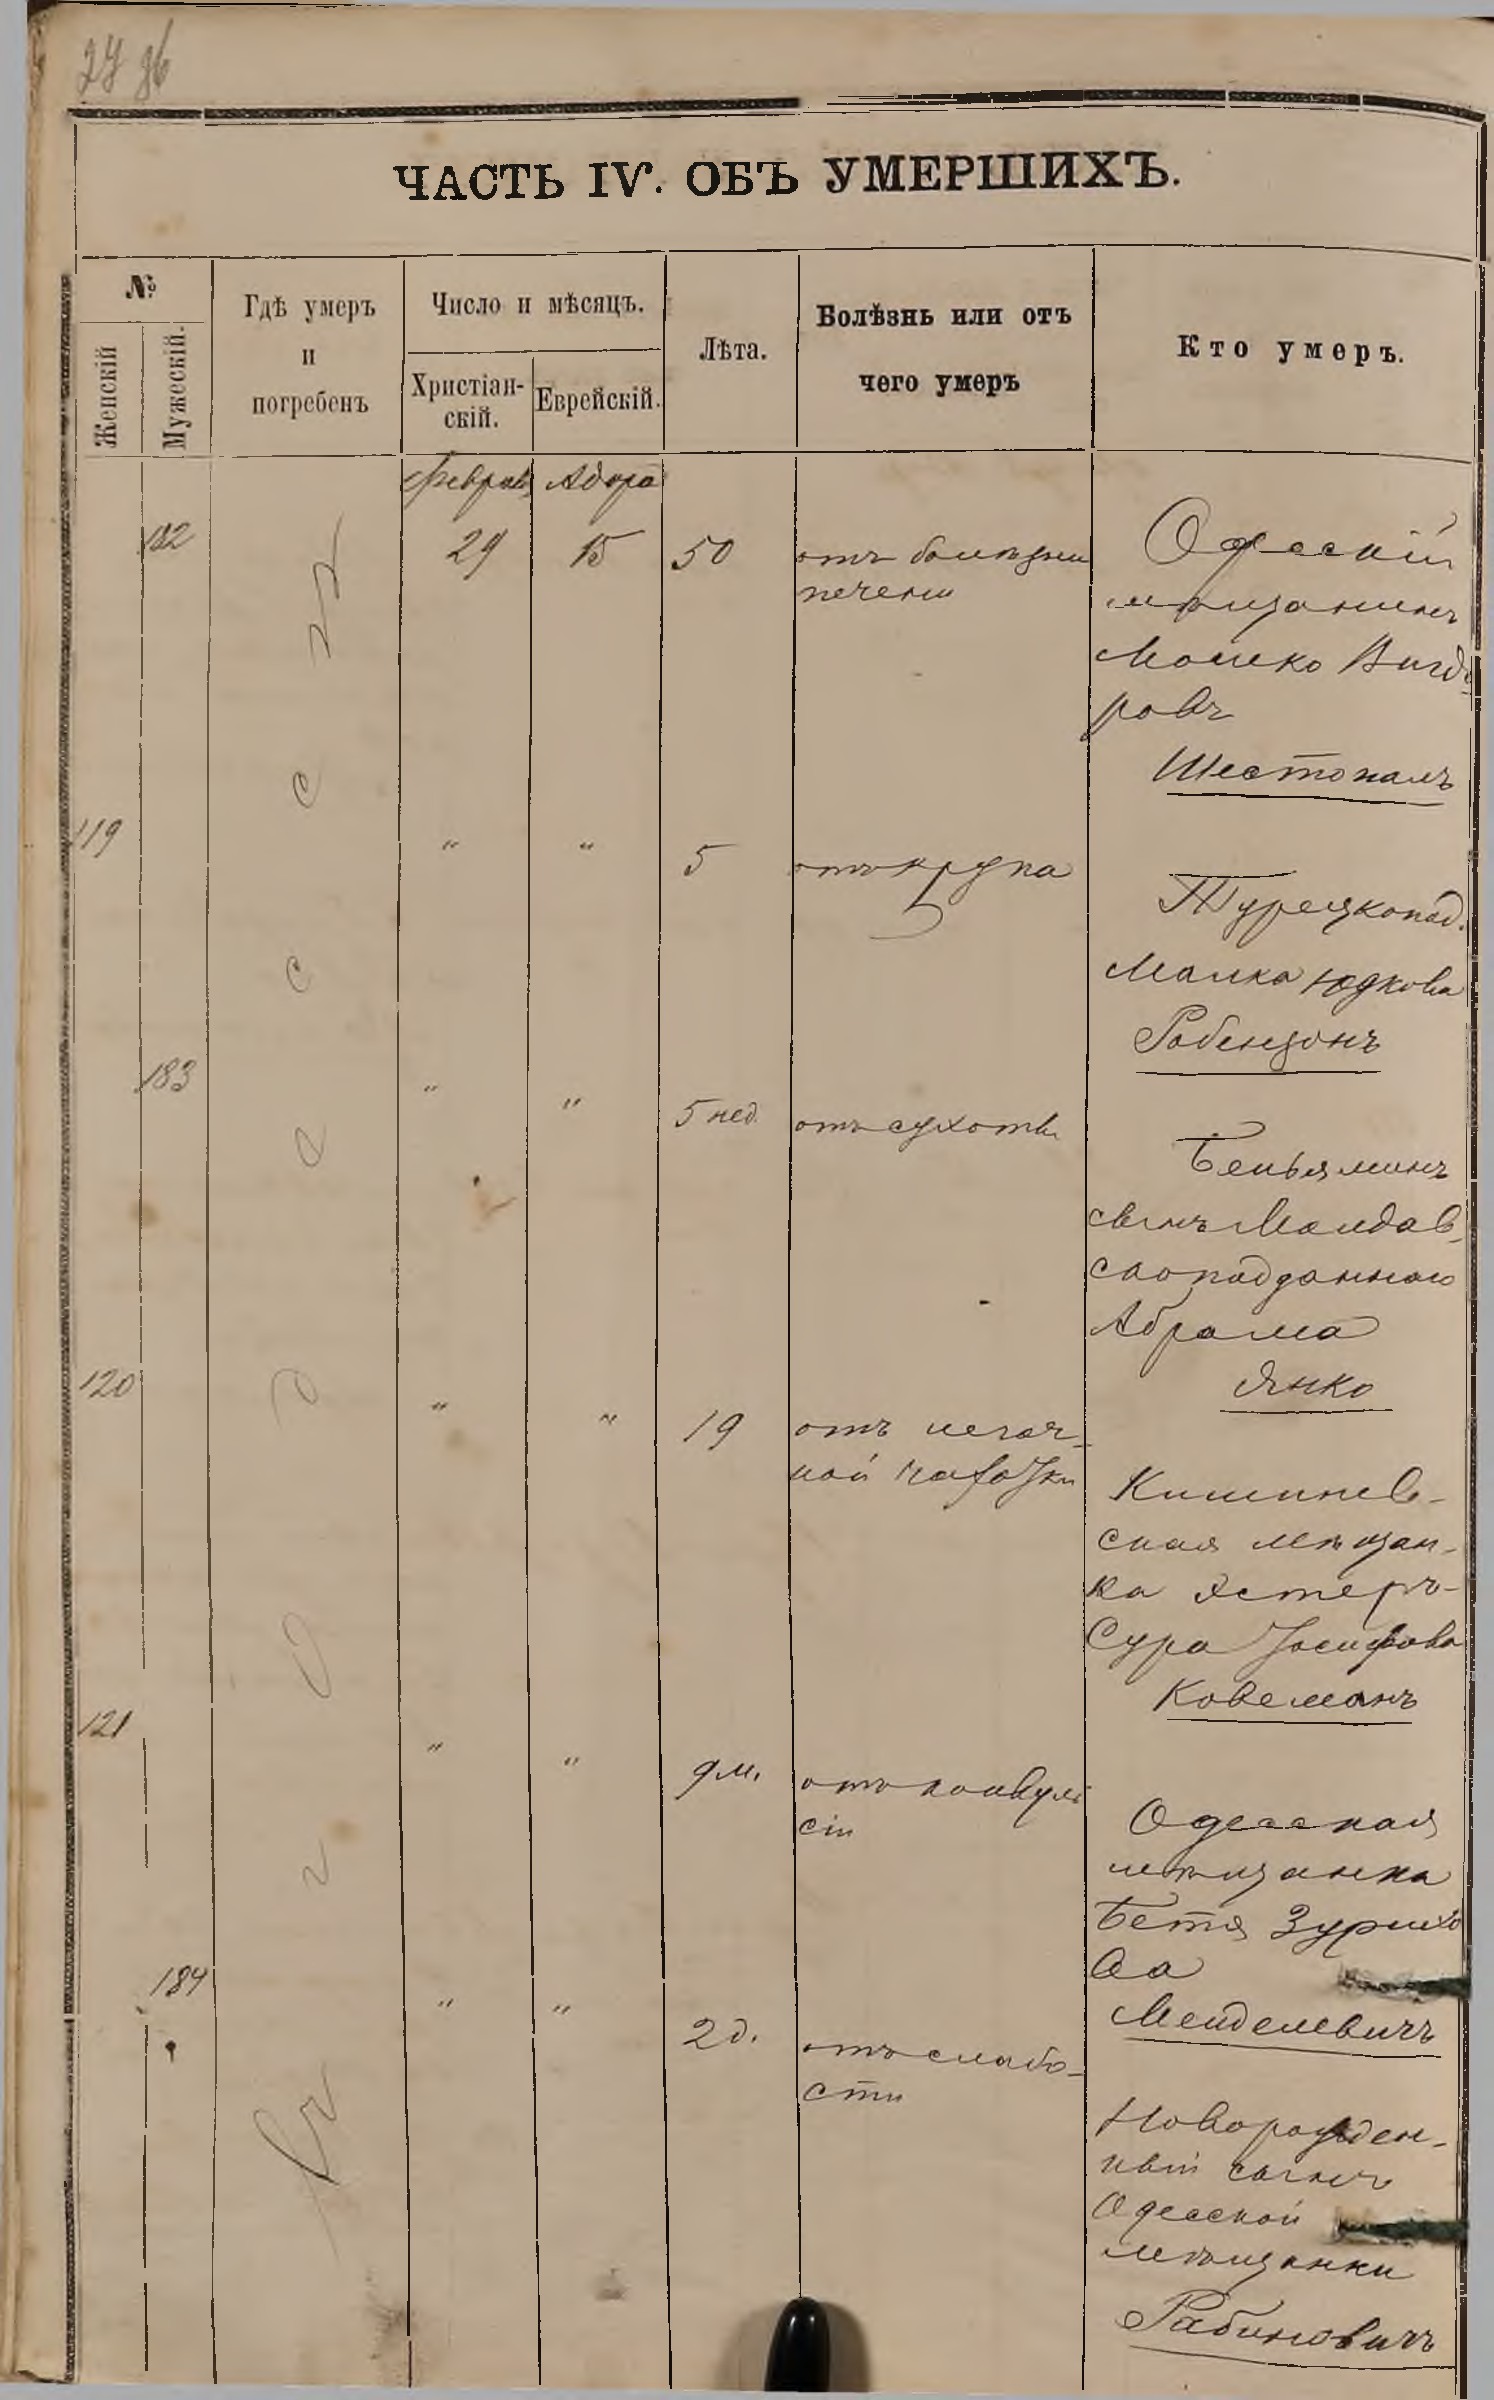 27 36
ЧАСТЬ IV. ОБЪ УМЕРШИХЪ.
№
Женскій
Мужескій.
Гдѣ умеръ
и
погребенъ
Число и мѣсяцъ.
Христіан-
скій.
Еврейскій.
Лѣта.
Болѣзнь или отъ
чего умеръ
Кто умеръ.
Феврал. Адора
182
29 15 50
отъ болѣзни
печени
Одесскій
мѣщанинъ
Мошко Вигдо-
ровъ
Шестопалъ
119
" " 5
отъ крупа
Турецкопод.
Малка Юдкова
Робензонъ
183
" " 5 нед.
отъ сухоты
Беньяминъ
сынъ Молдав-
скоподданного
Абрама
Янко
120
" " 19
отъ легоч-
ной чахотки
Кишинев-
ская мѣщан-
ка Эстеръ-
Сура Іосифова
Ковеманъ
121
" " 9 м.
отъ конвуль
сіи
Одесская
мѣщанка
Бетя Зурихо
ва
Менделевичъ
184
" " 2 д.
отъ слабо-
сти
Новорожден-
ный сынъ
Одесской
мѣщанки
Рабиновичъ
въ Одессѣ